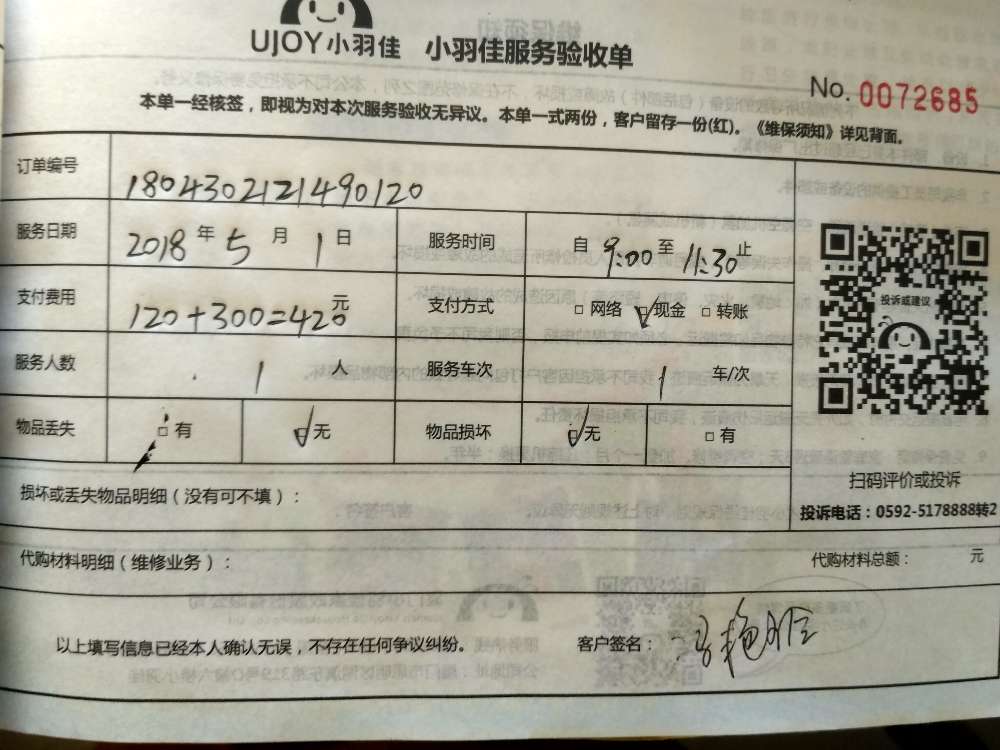 UJOY小羽佳 小羽佳服务验收单
No. 0072685
本单一经核签，即视为对本次服务验收无异议。本单一式两份，客户留存一份(红)。《维保须知》详见背面。
订单编号 1804302121490120
服务日期 2018年5月1日 服务时间 自9:00至11:30止
支付费用 120+300=420元 支付方式 □网络 ☑现金 □转账
服务人数 1人 服务车次 1车/次
物品丢失 □有 ☑无 物品损坏 ☑无 □有
投诉或建议
扫码评价或投诉
损坏或丢失物品明细（没有可不填）：
投诉电话：0592-5178888转2
代购材料明细（维修业务）： 代购材料总额： 元
以上填写信息已经本人确认无误，不存在任何争议纠纷。 客户签名：